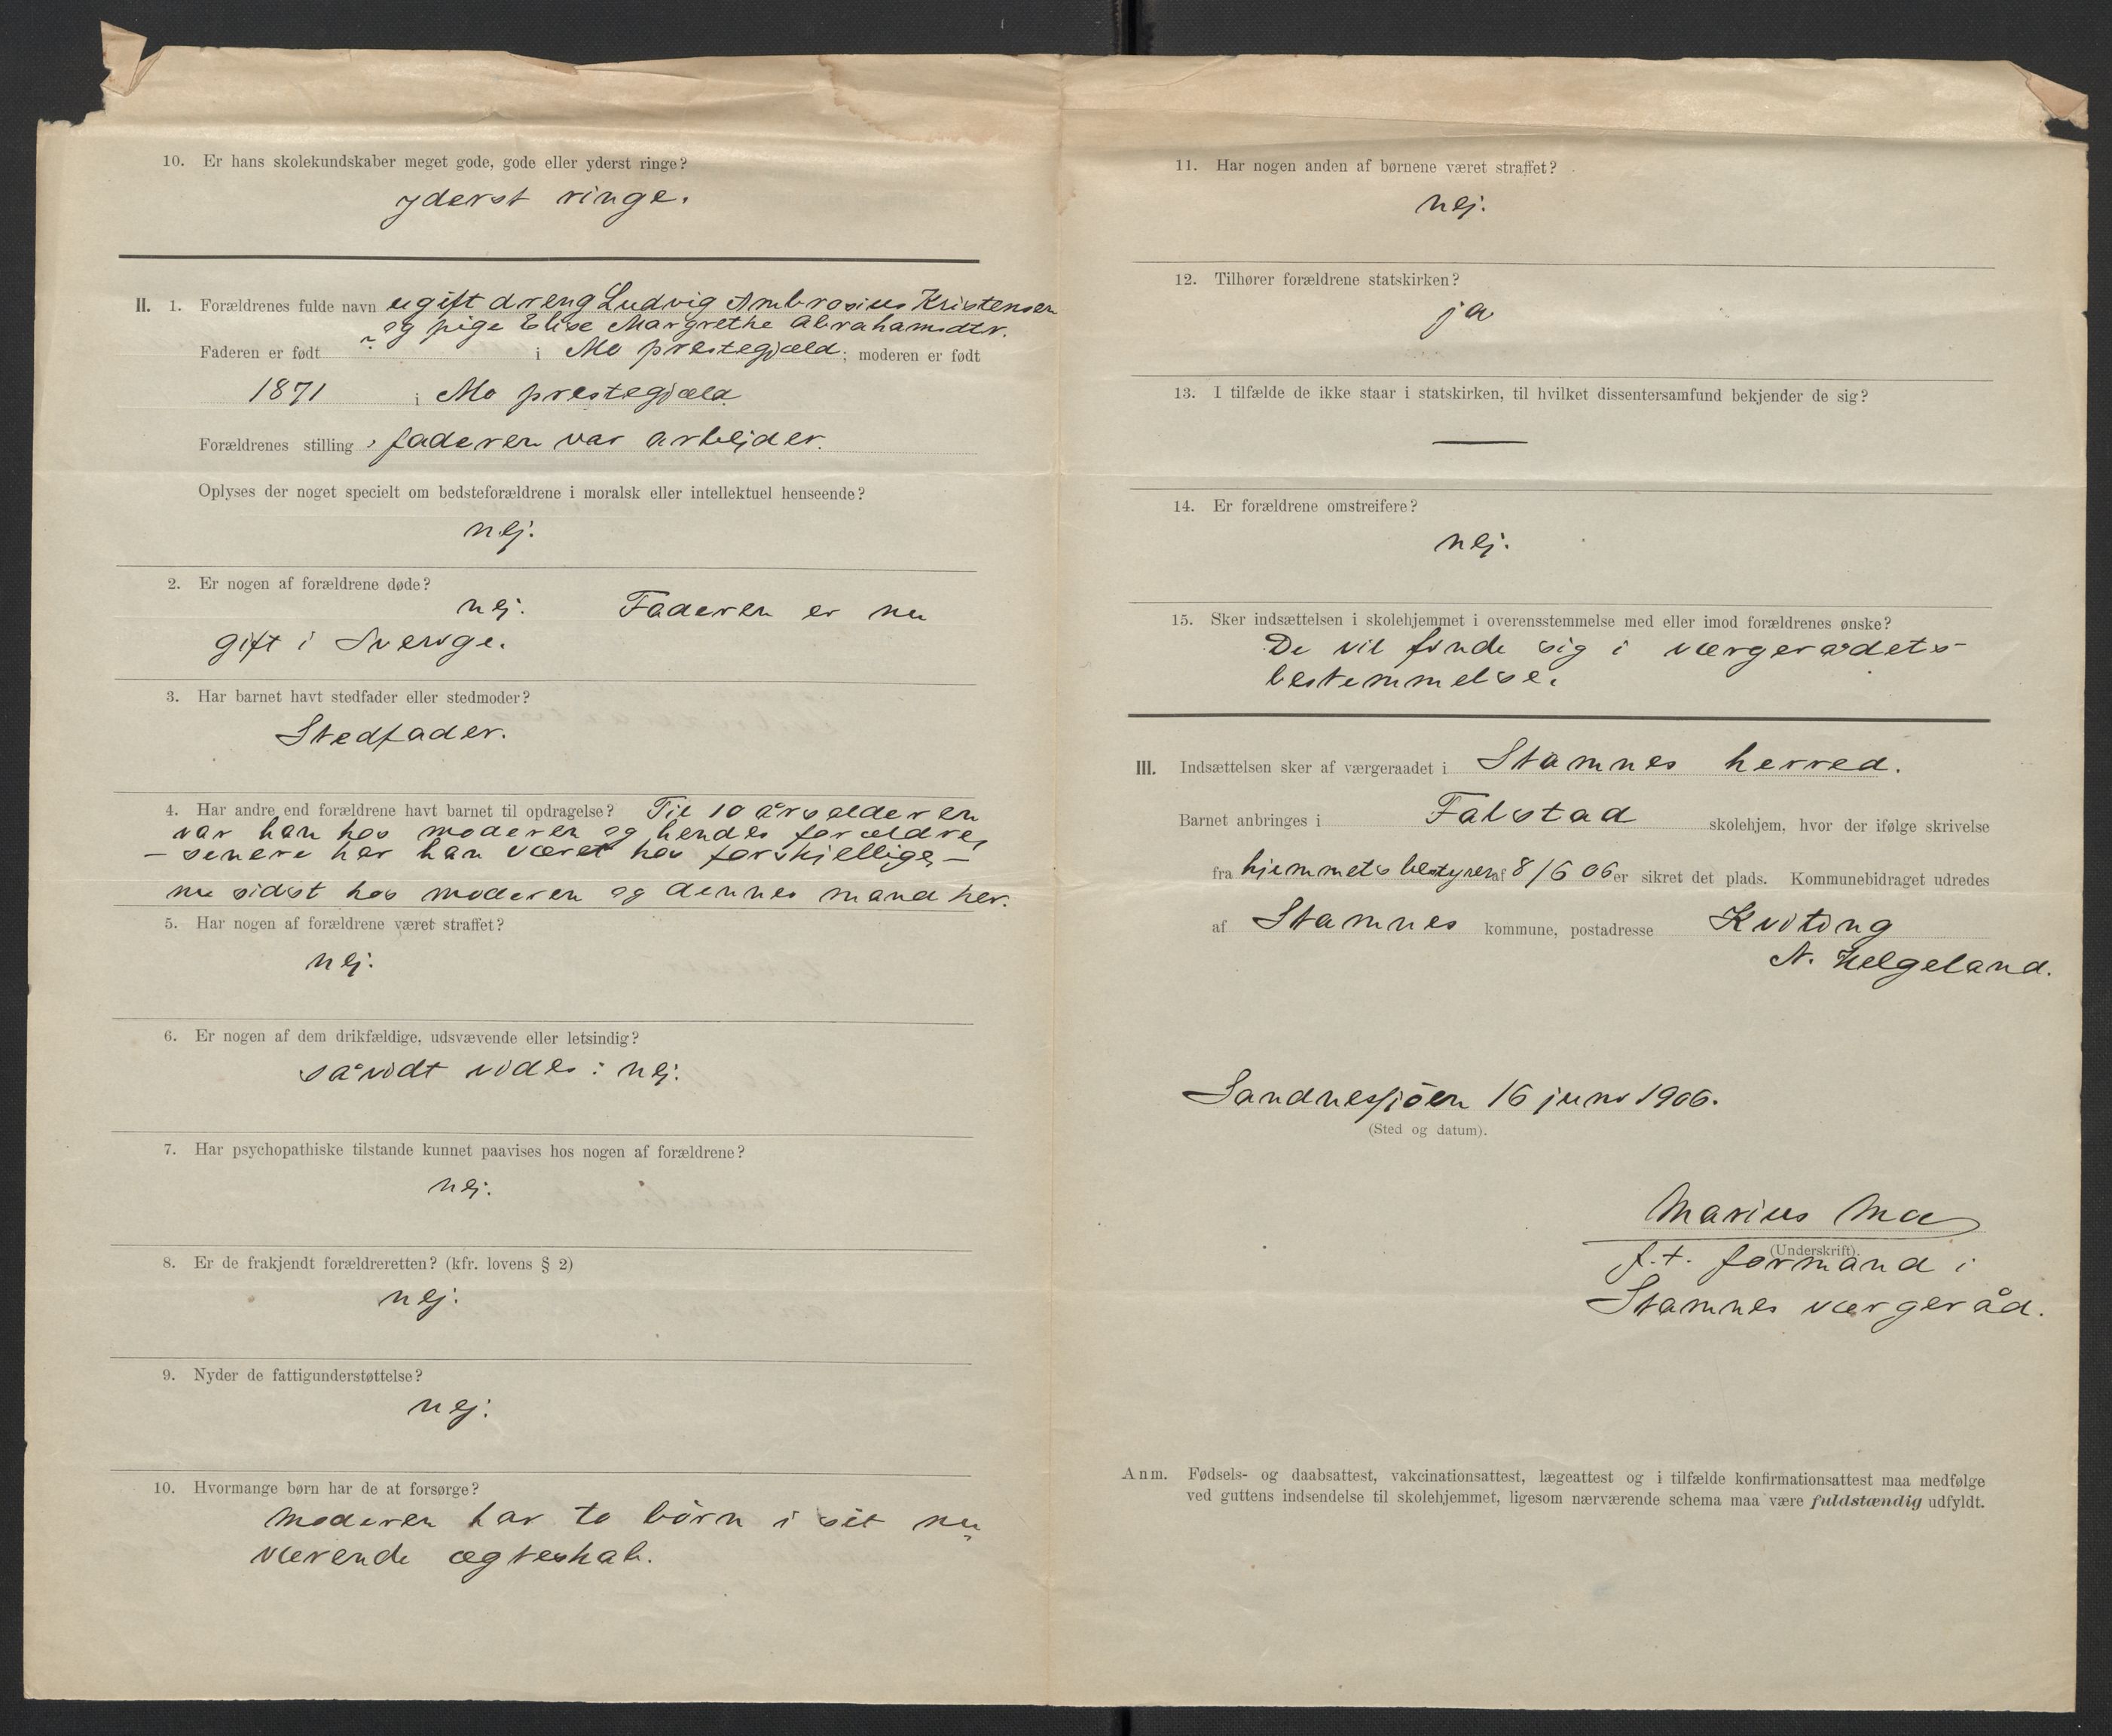 10. Er hans skolekundskaber meget gode, gode eller yderst ringe?
yderst ringe.
II. 1. Forældrenes fulde navn ugift dreng Ludvig Ambrosius Kristensen
og pige Elise Margrethe Abrahamsdtr.
Faderen er født ? i Mo prestegjæld; moderen er født
1871 i Mo prestegjæld
Forældrenes stilling , faderen var arbejder.
Oplyses der noget specielt om bedsteforældrene i moralsk eller intellektuel henseende?
nej.
2. Er nogen af forældrene døde?
nej. Faderen er nu
gift i Sverige.
3. Har barnet havt stedfader eller stedmoder?
Stedfader.
4. Har andre end forældrene havt barnet til opdragelse? Til 10 årsalderen
var han hos moderen og hendes forældre,
– senere har han været hos forskjellige, –
nu sidst hos moderen og dennes mand her.
5. Har nogen af forældrene været straffet?
nej.
6. Er nogen af dem drikfældige, udsvævende eller letsindig?
såvidt vides: nej.
7. Har psychopathiske tilstande kunnet paavises hos nogen af forældrene?
nej.
8. Er de frakjendt forældreretten? (kfr. lovens § 2)
nej.
9. Nyder de fattigunderstøttelse?
nej.
10. Hvormange børn har de at forsørge?
Moderen har to børn i sit nu
værende ægteskab.
11. Har nogen anden af børnene været straffet?
nej.
12. Tilhører forældrene statskirken?
ja
13. I tilfælde de ikke staar i statskirken, til hvilket dissentersamfund bekjender de sig?
—
14. Er forældrene omstreifere?
nej.
15. Sker indsættelsen i skolehjemmet i overensstemmelse med eller imod forældrenes ønske?
De vil finde sig i værgerådets
bestemmelse.
III. Indsættelsen sker af værgeraadet i Stamnes herred.
Barnet anbringes i Falstad skolehjem, hvor der ifølge skrivelse
fra hjemmets bestyrer af 8/6 06 er sikret det plads. Kommunebidraget udredes
af Stamnes kommune, postadresse Kviting
N. Helgeland.
Sandnessjöen 16 juni 1906.
(Sted og datum).
Marius Mo
(Underskrift).
f.t. formand i
Stamnes værgeråd.
Anm. Fødsels- og daabsattest, vakcinationsattest, lægeattest og i tilfælde konfirmationsattest maa medfølge
ved guttens indsendelse til skolehjemmet, ligesom nærværende schema maa være fuldstændig udfyldt.